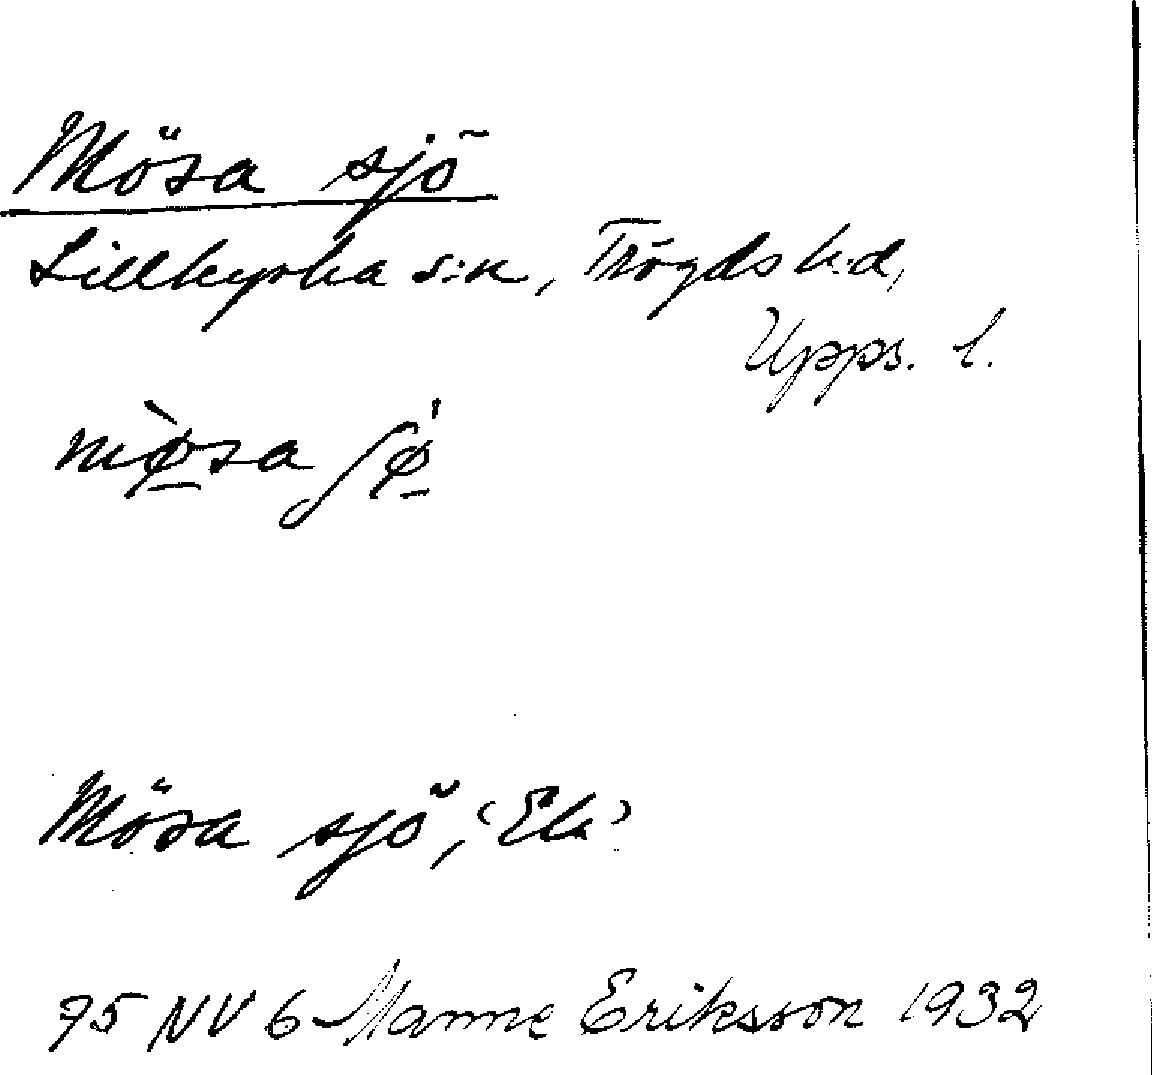 Mösa sjö
Lillkyrka s:n, Trögds h:d,
Upps. l.
mø̀sa ʃø̍
Mösa sjö, 'Ek'
75 NV 6 Manne Eriksson 1932